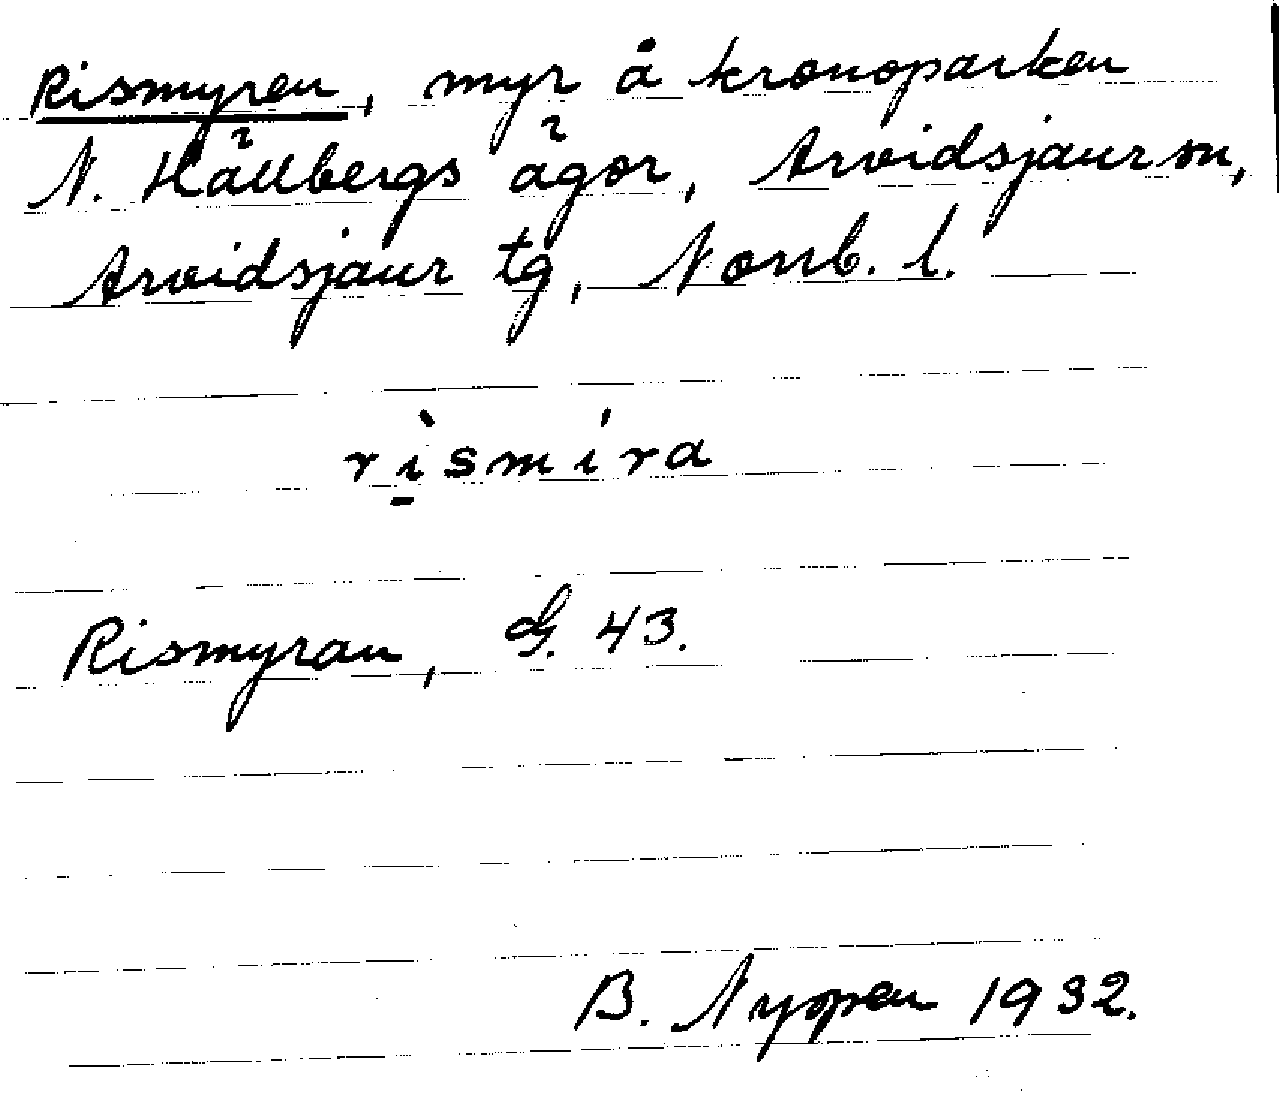 Rismyren, myr å kronoparken
N. Hällbergs ägor, Arvidsjaur sn,
Arvidsjaur tg, Norrb. l.
rìsmíra
Rismyran, G. 43.
B. Nyopen 1932.